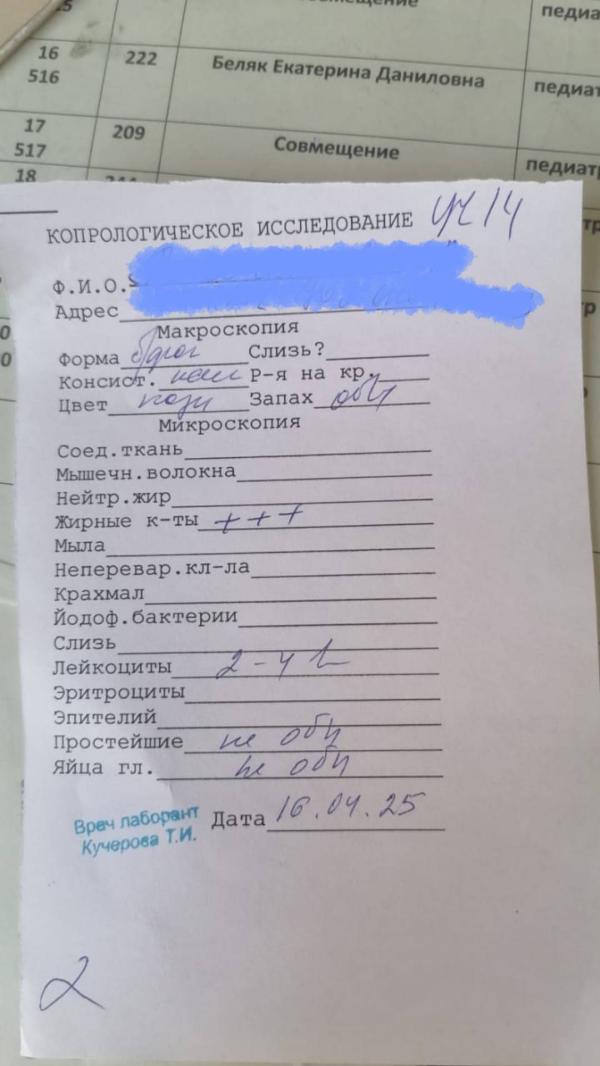 15
Совмещение
педиа
16
516
222
Беляк Екатерина Даниловна
педиат
17
517
209
Совмещение
педиатр
18
КОПРОЛОГИЧЕСКОЕ ИССЛЕДОВАНИЕ уч 14
Ф.И.О.
Адрес
Макроскопия
Форма Слизь?
Консист. каш Р-я на кр.
Цвет Запах обы
Микроскопия
Соед.ткань
Мышечн.волокна
Нейтр.жир
Жирные к-ты +++
Мыла
Неперевар.кл-ла
Крахмал
Йодоф.бактерии
Слизь
Лейкоциты 2-4
Эритроциты
Эпителий
Простейшие не обн
Яйца гл. не обн
Врач лаборант
Кучерова Т.И.
Дата 16.04.25
2